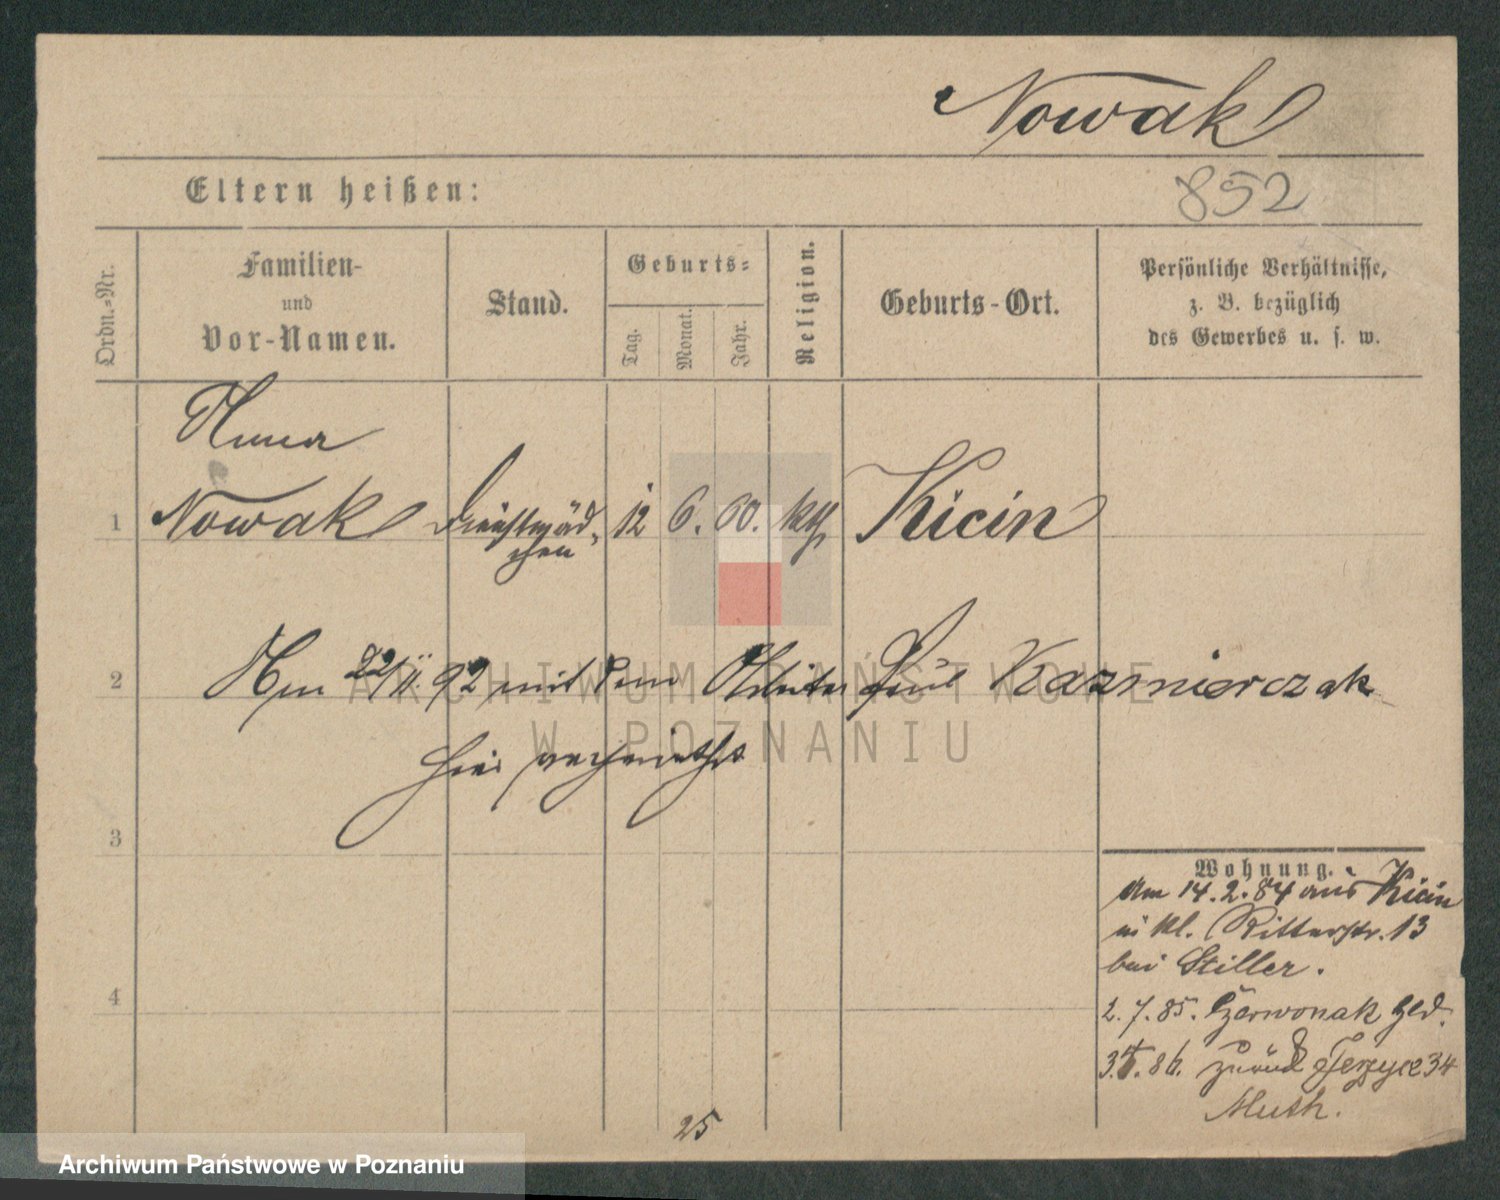 Nowak
852
Eltern heißen:
Ordn.-Nr.
Familien-
und
Vor-Namen.
Stand.
Geburts-
Tag.
Monat.
Jahr.
Religion.
Geburts-Ort.
Persönliche Verhältnisse,
z. B. bezüglich
des Gewerbes u. s. w.
Anna
1 Nowak Dienstmäd- 12 6. 60. kth Kicin
chen
2 Am 22/11 92 mit dem Arbeiter Paul Kazmierczak
hier verheirathet
3
Wohnung.
Am 14.2.84 aus Kicin
in kl. Ritterstr. 13
bei Stiller.
4
2.7.85. Czerwonak
86. zurück Jerzyce 34
Muth.
25
ARCHIWUM PAŃSTWOWE
W POZNANIU
Archiwum Państwowe w Poznaniu